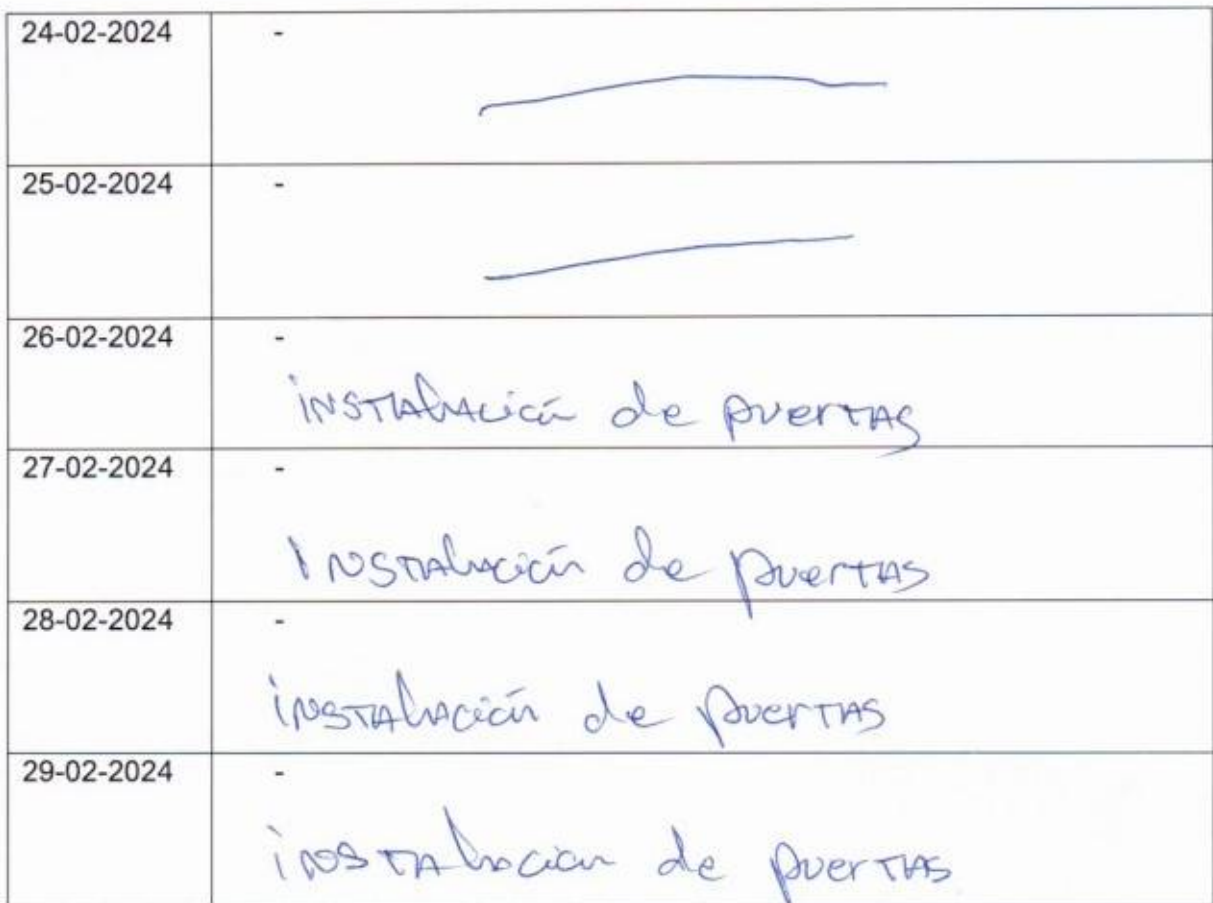 24-02-2024 -
25-02-2024 -
26-02-2024 -
instalación de puertas
27-02-2024 -
Instalación de puertas
28-02-2024 -
instalación de puertas
29-02-2024 -
instalacion de puertas